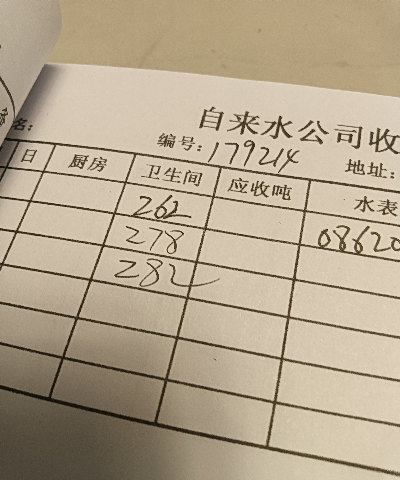 自来水公司收
名: 编号: 179214 地址:
日 厨房 卫生间 应收吨 水表
262
278 08620
282